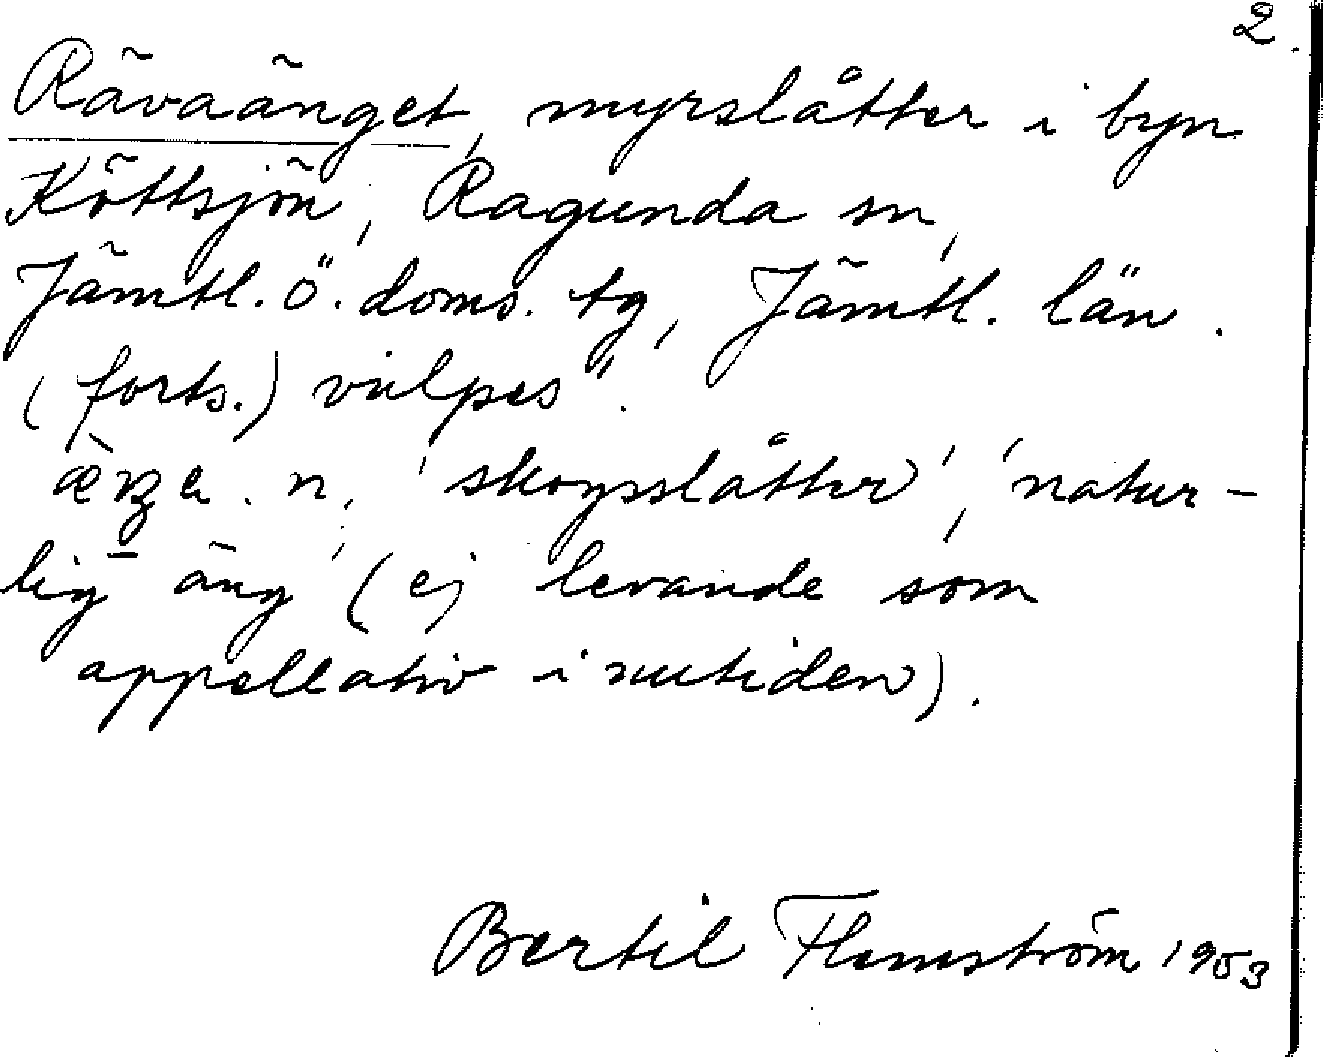 2.
Rävaänget, myrslåtter i byn
Köttsjön, Ragunda sn,
Jämtl. ö. doms. tg, Jämtl. län.
(forts.) vulpes".
n. 'skogsslåtter', 'natur-
lig äng' (ej levande som
appellativ i nutiden).
Bertil Flemström 1953